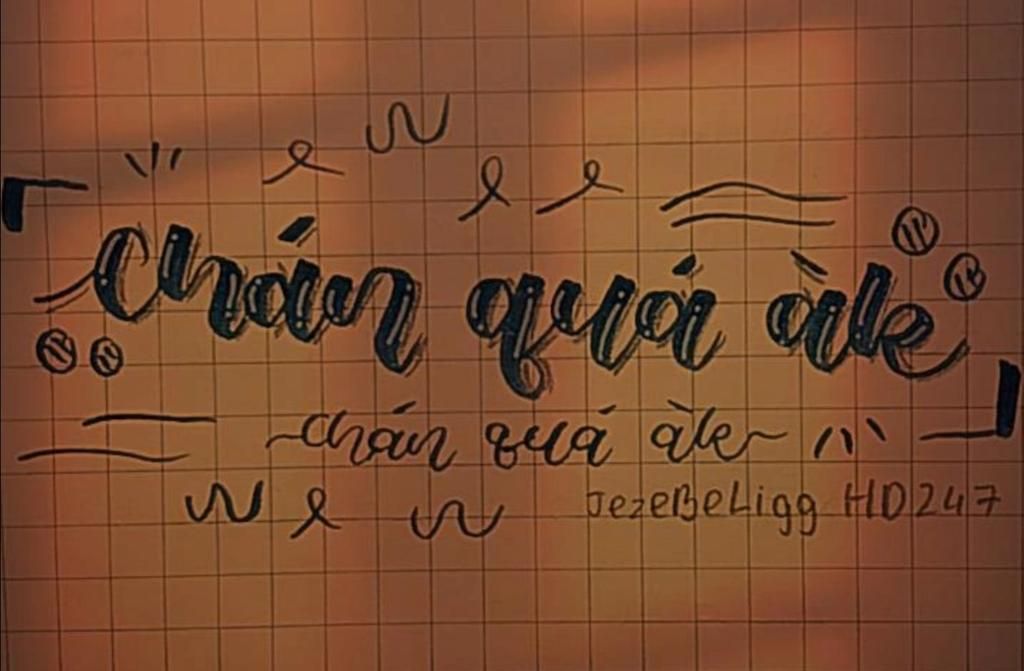 chán quá àk
~chán quá àk~
JezeBeLigg HD247